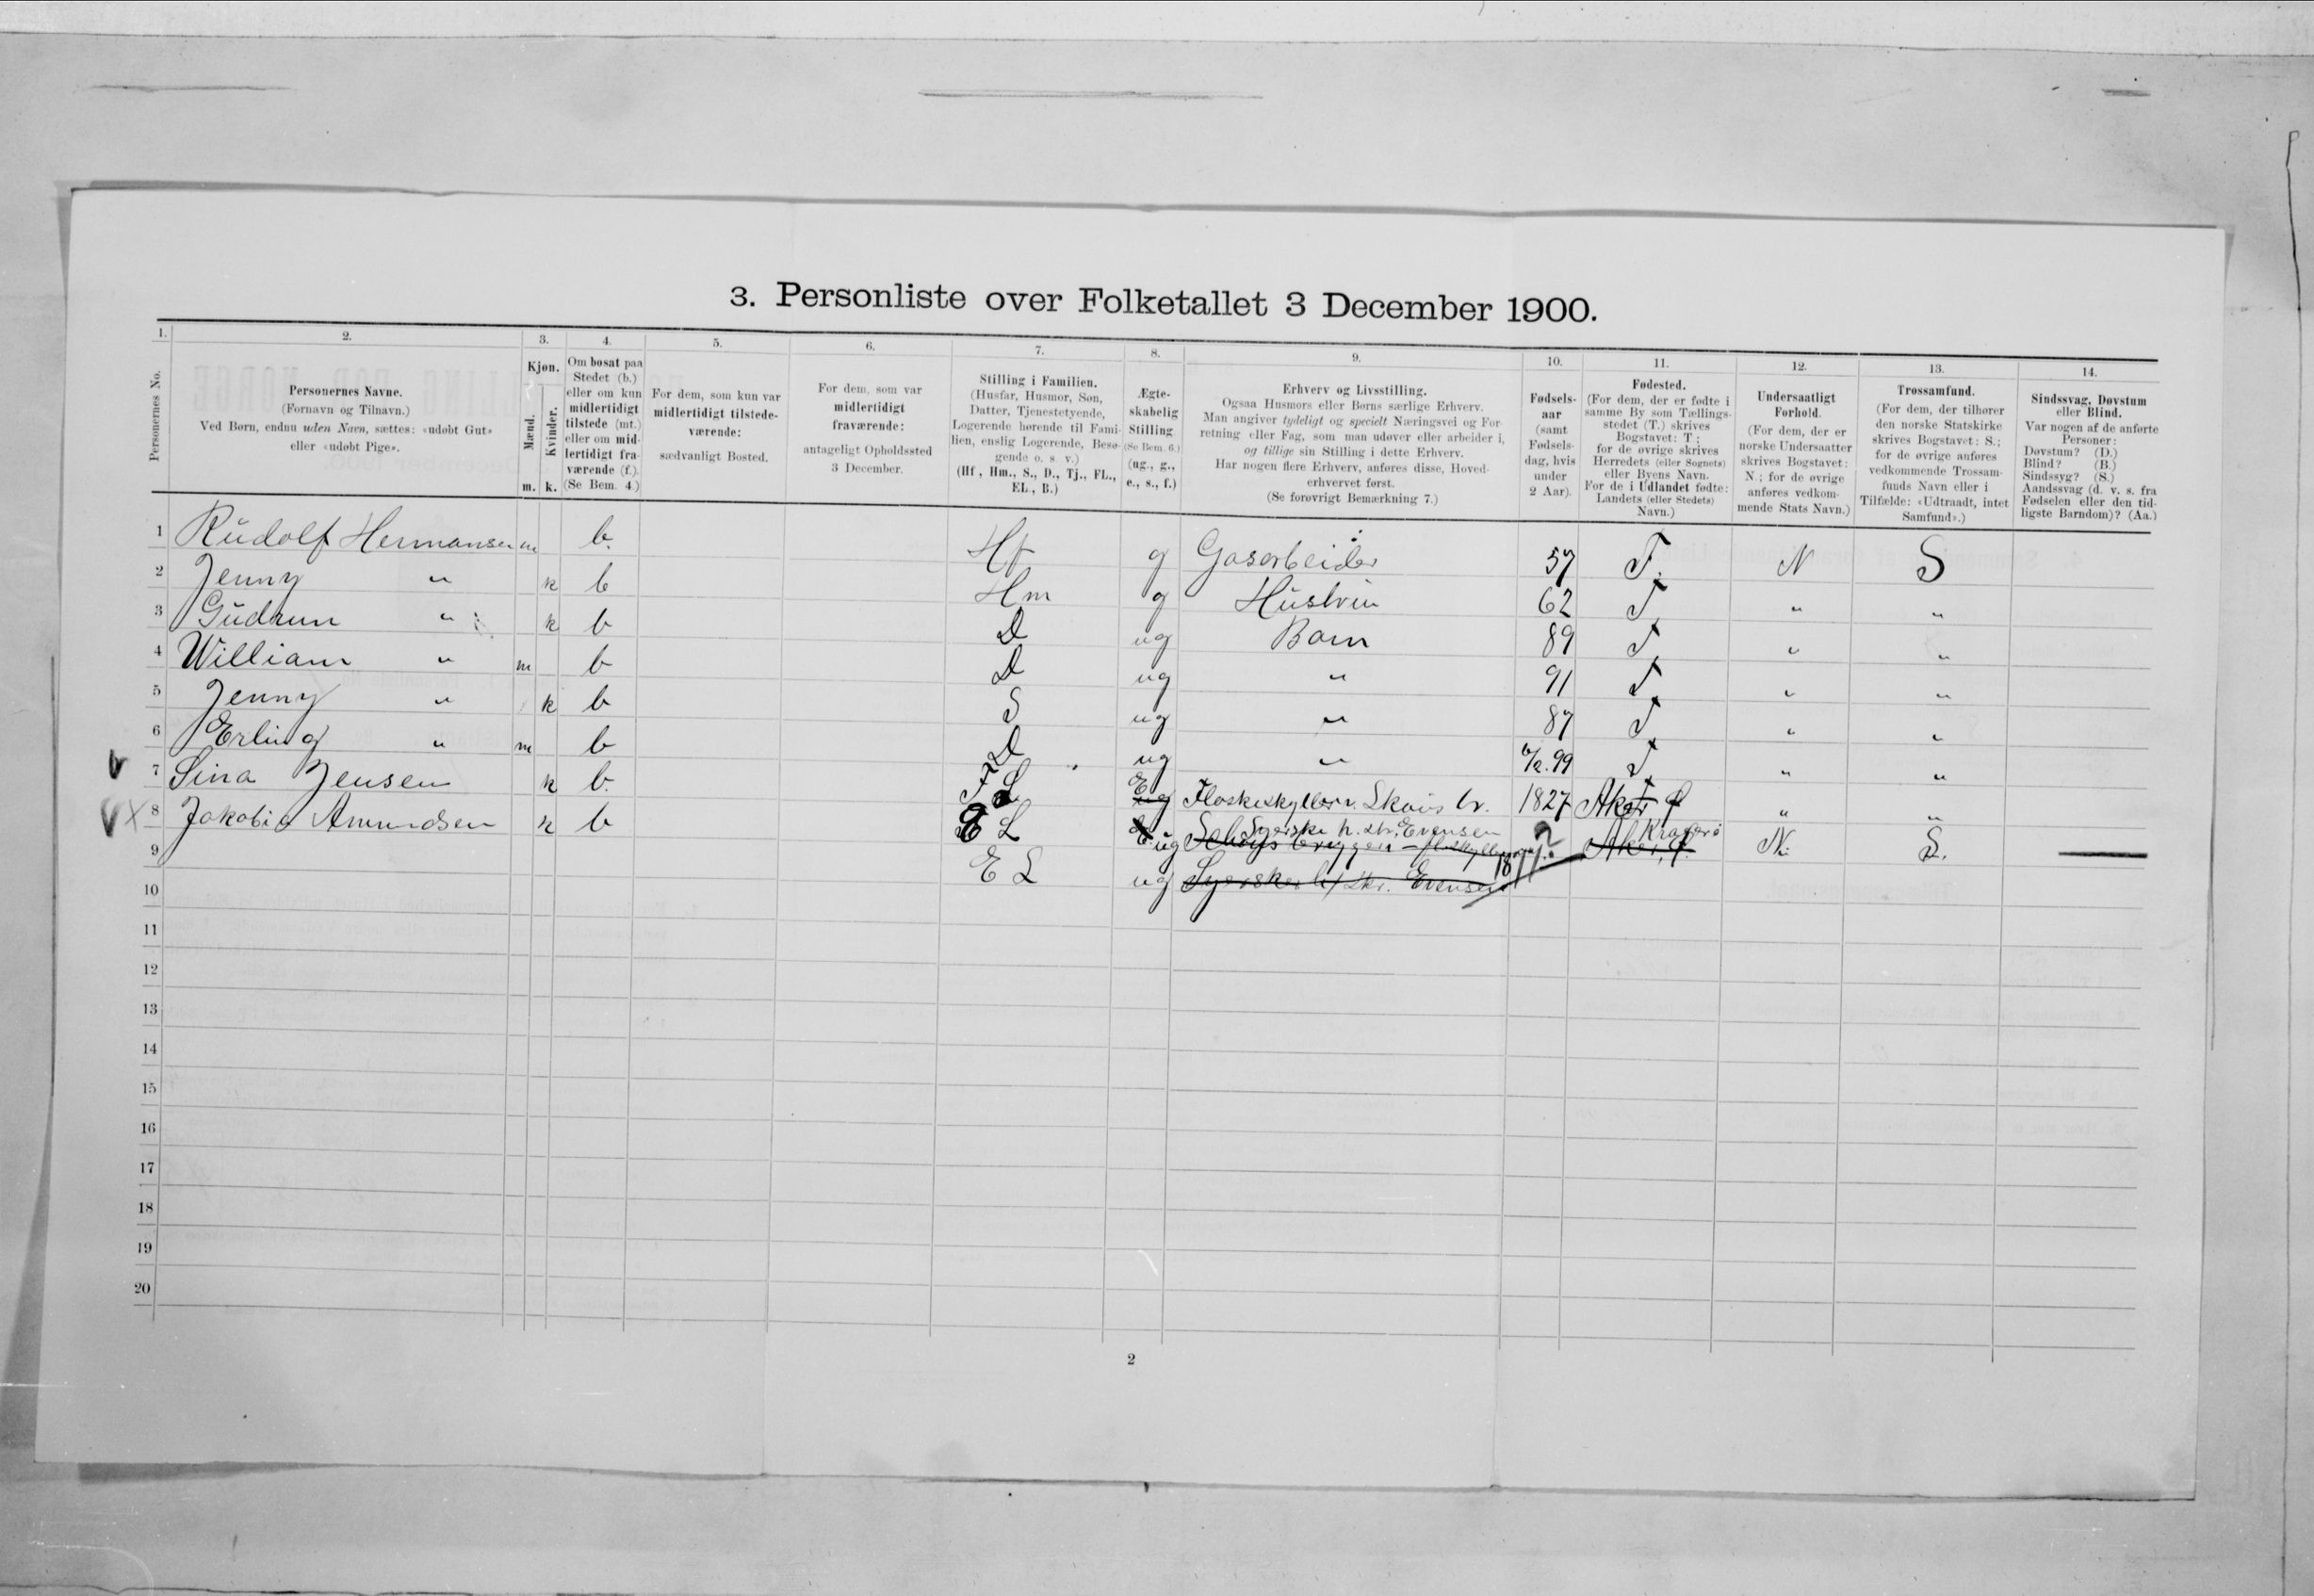 3. Personliste over Folketallet 3 December 1900.
1. 2. 3. 4. 5. 6. 7. 8. 9. 10. 11. 12. 13. 14.
Personernes No.
Personernes Navne.
(Fornavn og Tilnavn.)
Ved Børn, endnu uden Navn, sættes: «udøbt Gut»
eller «udøbt Pige».
Kjøn.
Mænd. Kvinder.
m. k.
Om bosat paa
Stedet (b.)
eller om kun
midlertidigt
tilstede (mt.)
eller om mid-
lertidigt fra-
værende (f.).
(Se Bem. 4.)
For dem, som kun var
midlertidigt tilstede-
værende:
sædvanligt Bosted.
For dem, som var
midlertidigt
fraværende:
antageligt Opholdssted
3 December.
Stilling i Familien.
(Husfar, Husmor, Søn,
Datter, Tjenestetyende,
Logerende hørende til Fami-
lien, enslig Logerende, Besø-
gende o. s. v.)
(Hf., Hm., S., D., Tj., FL.,
EL., B.)
Ægte-
skabelig
Stilling
(Se Bem. 6.)
(ug., g.,
e., s., f.)
Erhverv og Livsstilling.
Ogsaa Husmors eller Børns særlige Erhverv.
Man angiver tydeligt og specielt Næringsvei og For-
retning eller Fag, som man udøver eller arbeider i,
og tillige sin Stilling i dette Erhverv.
Har nogen flere Erhverv, anføres disse, Hoved-
erhvervet først.
(Se forøvrigt Bemærkning 7.)
Fødsels-
aar
(samt
Fødsels-
dag, hvis
under
2 Aar).
Fødested.
(For dem, der er fødte i
samme By som Tællings-
stedet (T.) skrives
Bogstavet: T;
for de øvrige skrives
Herredets (eller Sognets)
eller Byens Navn.
For de i Udlandet fødte:
Landets (eller Stedets)
Navn.)
Undersaatligt
Forhold.
(For dem, der er
norske Undersaatter
skrives Bogstavet:
N.; for de øvrige
anføres vedkom-
mende Stats Navn.)
Trossamfund.
(For dem, der tilhører
den norske Statskirke
skrives Bogstavet: S.;
for de øvrige anføres
vedkommende Trossam-
funds Navn eller i
Tilfælde: «Udtraadt, intet
Samfund».)
Sindssvag, Døvstum
eller Blind.
Var nogen af de anførte
Personer:
Døvstum? (D.)
Blind? (B.)
Sindssyg? (S.)
Aandssvag (d. v. s. fra
Fødselen eller den tid-
ligste Barndom)? (Aa.)
1 Rudolf Hermansen m b. Hf g Gasarbeider 57 T. N S
2 Jenny " k b Hm g Hustru 62 T. " "
3 Gudrun " k b D ug Barn 89 T. " "
4 William " m b D ug " 91 T. " "
5 Jenny " k b S ug " 87 T. " "
6 Erling " m b D ug " 99 T. " "
7 Sina Jensen k b. F L E ug Flaskeskyller v. Skøis br. 1827 Aker " "
8 Jakobia Amundsen k b E L ug Syerske h. skr. Evensen ? Kragerø N. S.
9 E L ug Syerske h/ skr. Evensen 18
10
11
12
13
14
15
16
17
18
19
20
2